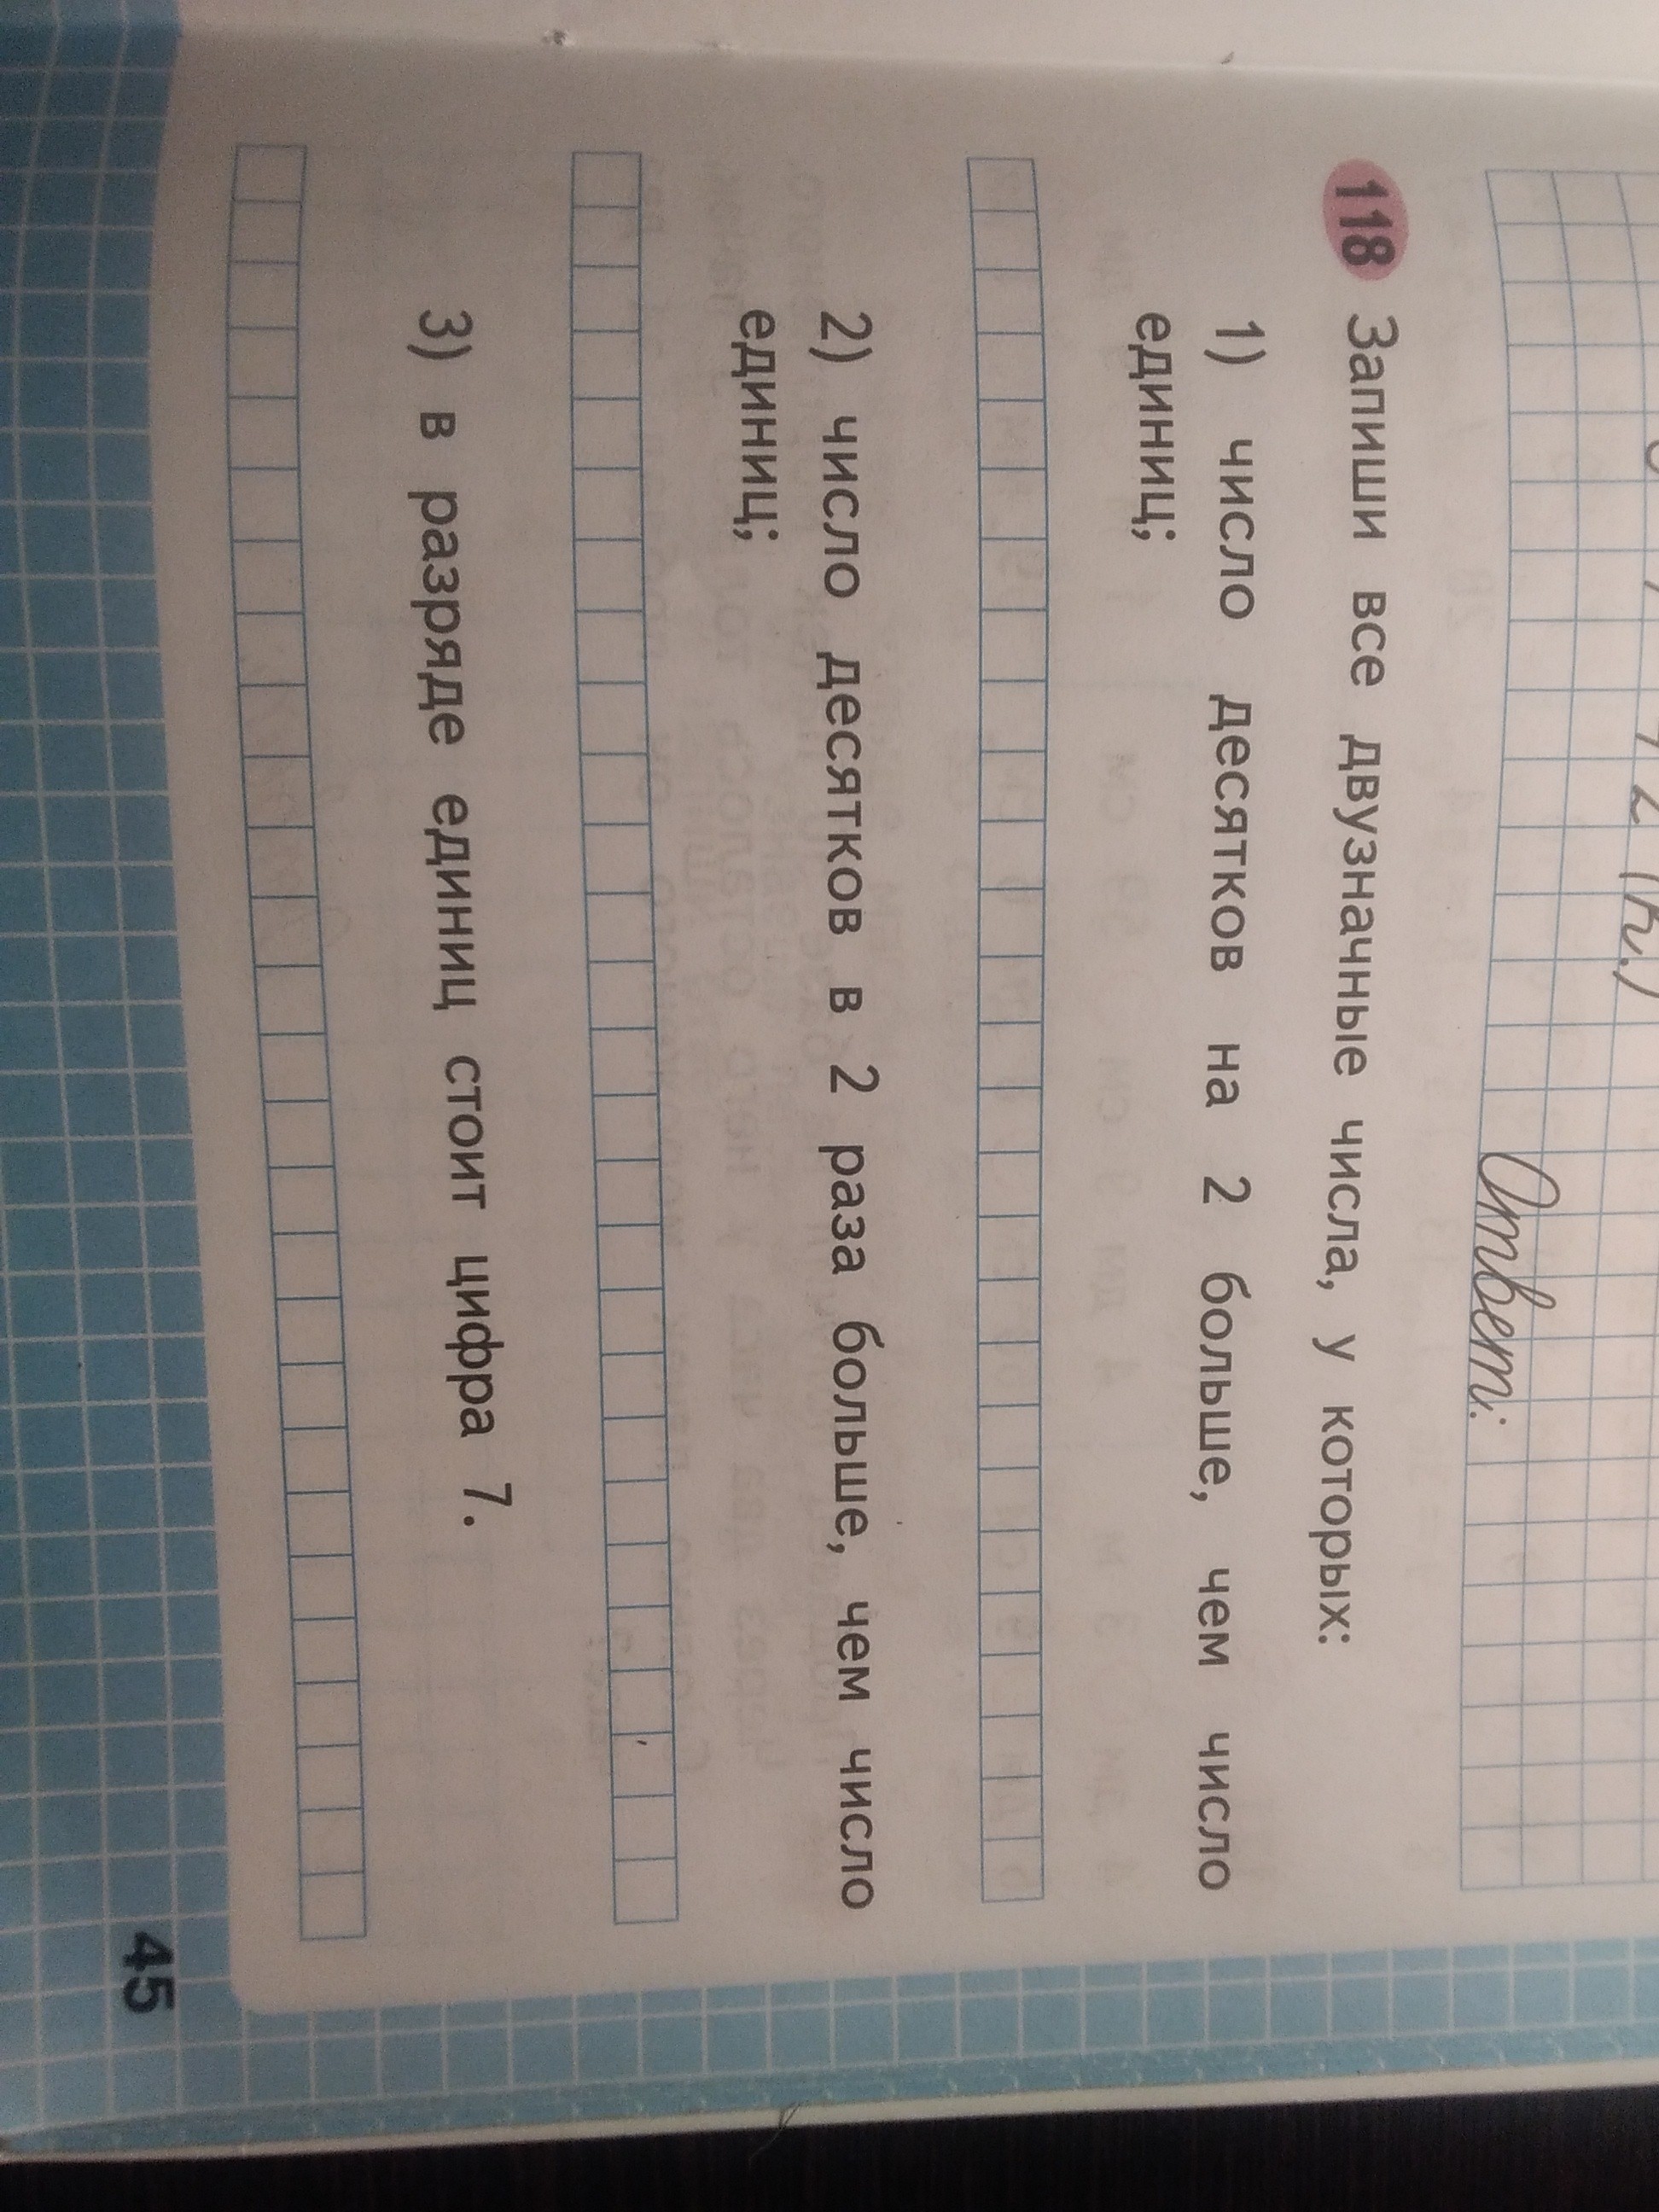 Ответ:
118 Запиши все двузначные числа, у которых:
1) число десятков на 2 больше, чем число
единиц;
2) число десятков в 2 раза больше, чем число
единиц;
3) в разряде единиц стоит цифра 7.
45